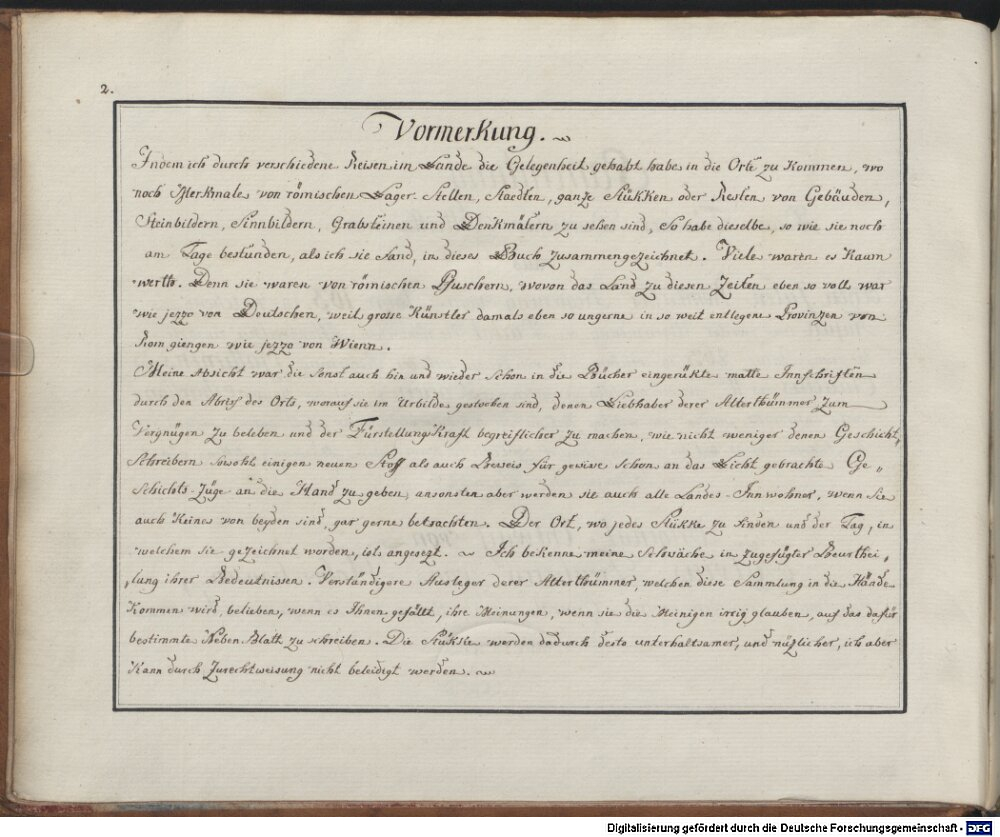 2.
Vormerkung.
Indem ich durch verschiedene Reisen im Lande die Gelegenheit gehabt habe in die Orte zu kommen, wo
noch Merkmale von römischen Lager-Stellen, Staedten, ganze Stükken oder Resten von Gebäuden,
Steinbildern, Sinnbildern, Grabsteinen und Denkmälern zu sehen sind, So habe dieselbe, so wie sie noch
am Tage bestunden, als ich sie fand, in dieses Buch zusammengezeichnet. Viele waren es kaum
werth. Denn sie waren von römischen Pfuschern, wovon das Land zu diesen Zeiten eben so voll war
wie jezzo von Deutschen, weil grosse Künstler damals eben so ungerne in so weit entlegene Provinzen von
Rom giengen wie jezzo von Wienn.
Meine Absicht war die sonst auch hin und wieder schon in die Bücher eingerükte matte Innschriften
durch den Abriss des Orts, worauf sie im Urbilde gestochen sind, denen Liebhaber derer Alterthümmer zum
Vergnügen zu beleben und der Fürstellungskraft begreiflicher zu machen, wie nicht weniger denen Geschicht,
Schreibern sowohl einigen neuen Stoff als auch Beweis für gewise schon an das Licht gebrachte Ge„
schichts-Züge an die Hand zu geben, ansonsten aber werden sie auch alle Landes-Innwohner, wenn sie
auch keines von beyden sind, gar gerne betrachten. Der Ort, wo jedes Stükke zu finden und der Tag, in
welchem sie gezeichnet worden, ists angesezt. Ich bekenne meine Schwäche in zugefügter Beurthei„
„lung ihrer Bedeutnissen. Verständigere Ausleger derer Alterthümmer, welchen diese Sammlung in die Hände
kommen wird, belieben, wenn es Ihnen gefällt, ihre Meinungen, wenn sie die Meinigen irrig glauben, auf das dafür
bestimmte Neben Blatt zu schreiben. Die Stükke werden dadurch desto unterhaltsamer, und nüzlicher, ich aber
kann durch Zurechtweisung nicht beleidigt werden.
Digitalisierung gefördert durch die Deutsche Forschungsgemeinschaft - DFG